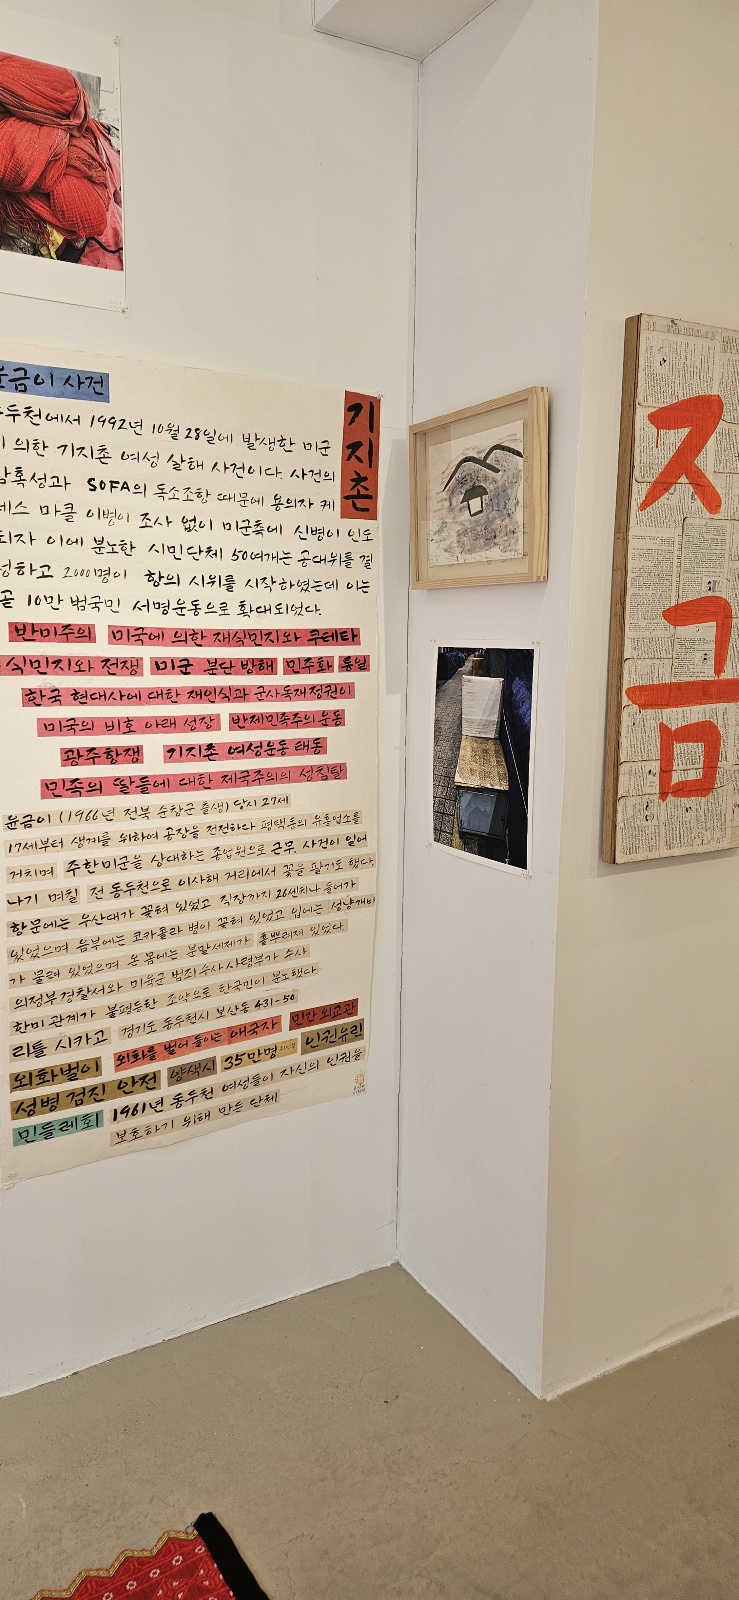 금이 사건
기지촌
두천에서 1992년 10월 28일에 발생한 미군
의한 기지촌 여성 살해 사건이다. 사건의
혹성과 SOFA의 독소조항 때문에 용의자 케
네스 마클 이병이 조사 없이 미군측에 신병이 인도
되자 이에 분노한 시민단체 50여개는 공대위를 결
성하고 2000명이 항의 시위를 시작하였는데 이는
곧 10만 범국민 서명운동으로 확대되었다.
반미주의 미국에 의한 재식민지와 쿠테타
식민지와 전쟁 미군 분단 방해 민주화 통일
한국 현대사에 대한 재인식과 군사독재정권이
미국의 비호 아래 성장 반제민족주의 운동
광주항쟁 기지촌 여성운동 태동
민족의 딸들에 대한 제국주의의 성침탈
윤금이 (1966년 전북 순창군 출생) 당시 27세
17세부터 생계를 위하여 공장을 전전하다 평택등의 유흥업소를
거치며 주한미군을 상대하는 종업원으로 근무. 사건이 일어
나기 며칠 전 동두천으로 이사해 거리에서 꽃을 팔기도 했다.
항문에는 우산대가 꽂혀 있었고 직장까지 26센치나 들어가
있었으며 음부에는 코카콜라 병이 꽂혀 있었고 입에는 성냥개비
가 물려 있었으며 온 몸에는 분말세제가 흩뿌려져 있었다.
의정부경찰서와 미육군 범죄수사사령부가 수사
한미관계가 불평등한 조약으로 한국민이 분노했다
리틀 시카고 경기도 동두천시 보산동 431-50
외화벌이 외화를 벌어 들이는 애국자 민간 외교관
성병 검진 안전 양색시 35만명 인권유린
민들레회 1961년 동두천 여성들이 자신의 인권을
보호하기 위해 만든 단체
지금